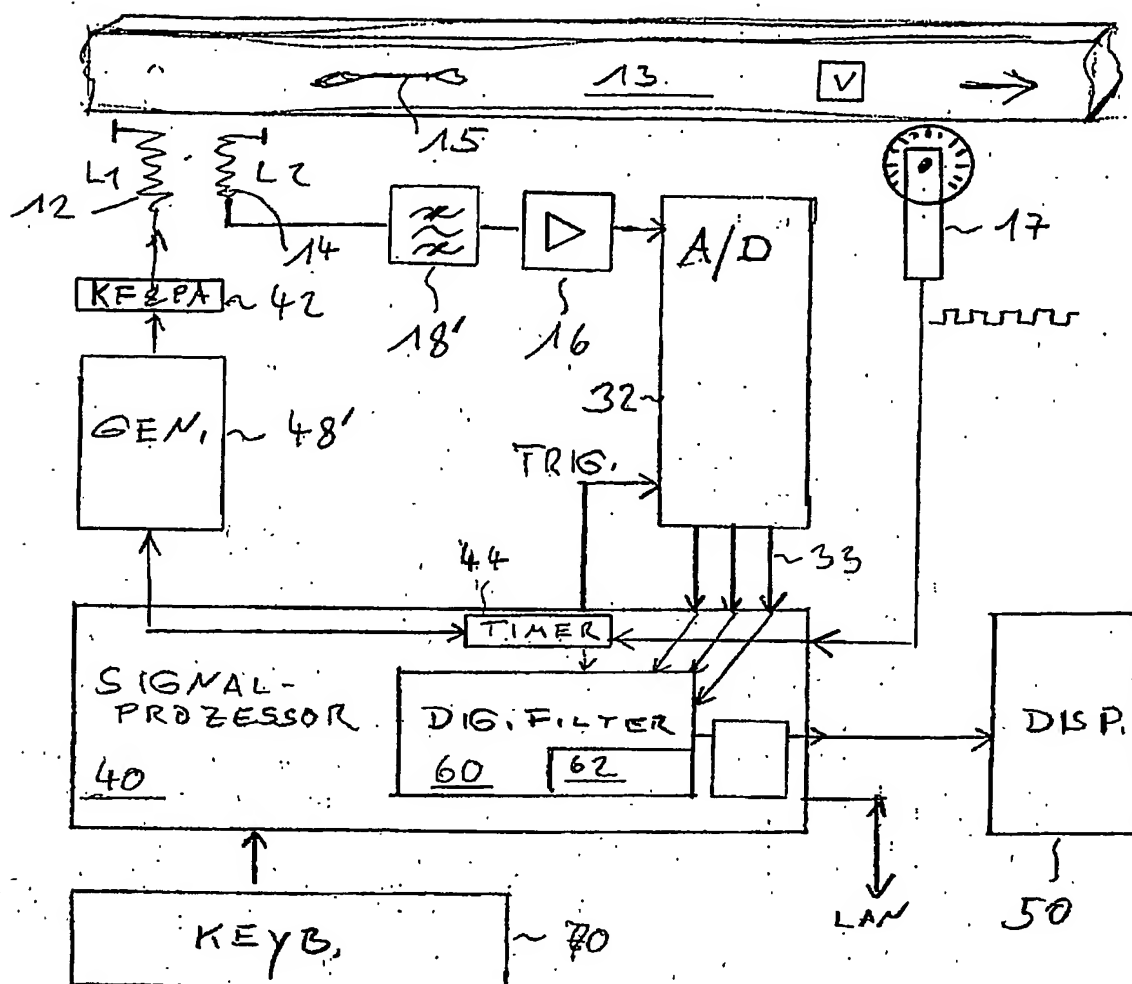 13
V
15
L1
L2
12
14
17
KF&PA
42
18'
16
A/D
32
GEN.
48'
TRIG.
33
44
TIMER
SIGNAL-
PROZESSOR
40
DIG. FILTER
60
62
DISP.
50
LAN
KEYB.
70